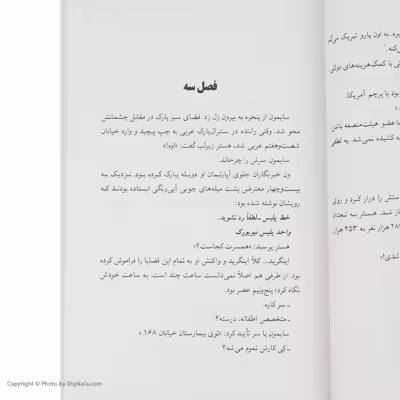 فصل سه
سایمون از پنجره به بیرون زل زد. فضای سبز پارک در مقابل چشمانش
محو شد. وقتی راننده در سنترال‌پارک غربی به چپ پیچید و وارد خیابان
شصت‌وهفتم غربی شد، هستر زیرلب گفت: «اوه!»
سایمون سرش را چرخاند.
ون خبرنگاران جلوی آپارتمان او دوبله پارک کرده بود. نزدیک به
بیست‌وچهار معترض پشت میله‌های چوبی آبی‌رنگی ایستاده بودند که
رویشان نوشته شده بود:
خط پلیس ـ لطفاً رد نشوید.
واحد پلیس نیویورک
هستر پرسید: «همسرت کجاست؟»
اینگرید... کلاً اینگرید و واکنش او به تمام این قضایا را فراموش کرده
بود. از طرفی هم اصلاً نمی‌دانست ساعت چند است. به ساعت خودش
نگاه کرد؛ پنج‌ونیم عصر بود.
ـ سر کاره.
ـ متخصص اطفاله، درسته؟
سایمون با سر تأیید کرد: «توی بیمارستان خیابان ۱۶۸.»
ـ کِی کارش تموم می‌شه؟
به اون یارو تبریک می‌گم
با کمک‌هزینه‌های دولتی
بود یا پرچم آمریکا.
عضو هیئت‌منصفه باشن
کشیده نمی‌شه. یه لطفی
دستش را دراز کرد و روی
شد. هستر به تعداد
هزار نفر به ۴۵۳ هزار
شدی!»
Copyright © Photo by Digikala.com